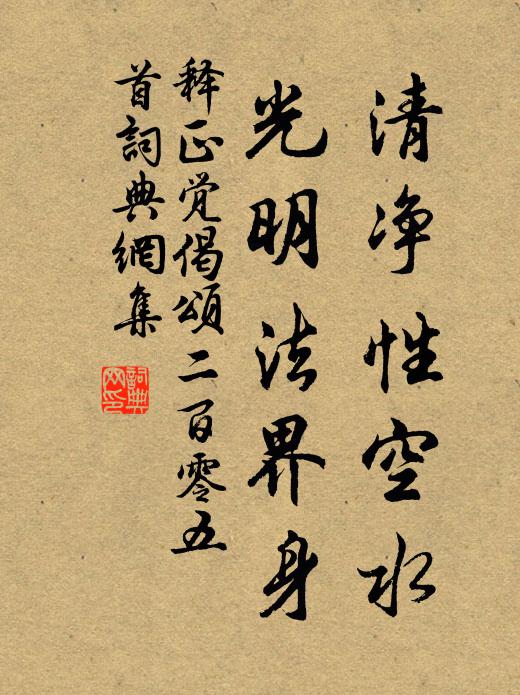 清净性空水
光明法界身
释正觉偈颂二百零五
首詞典網集
詞典网印